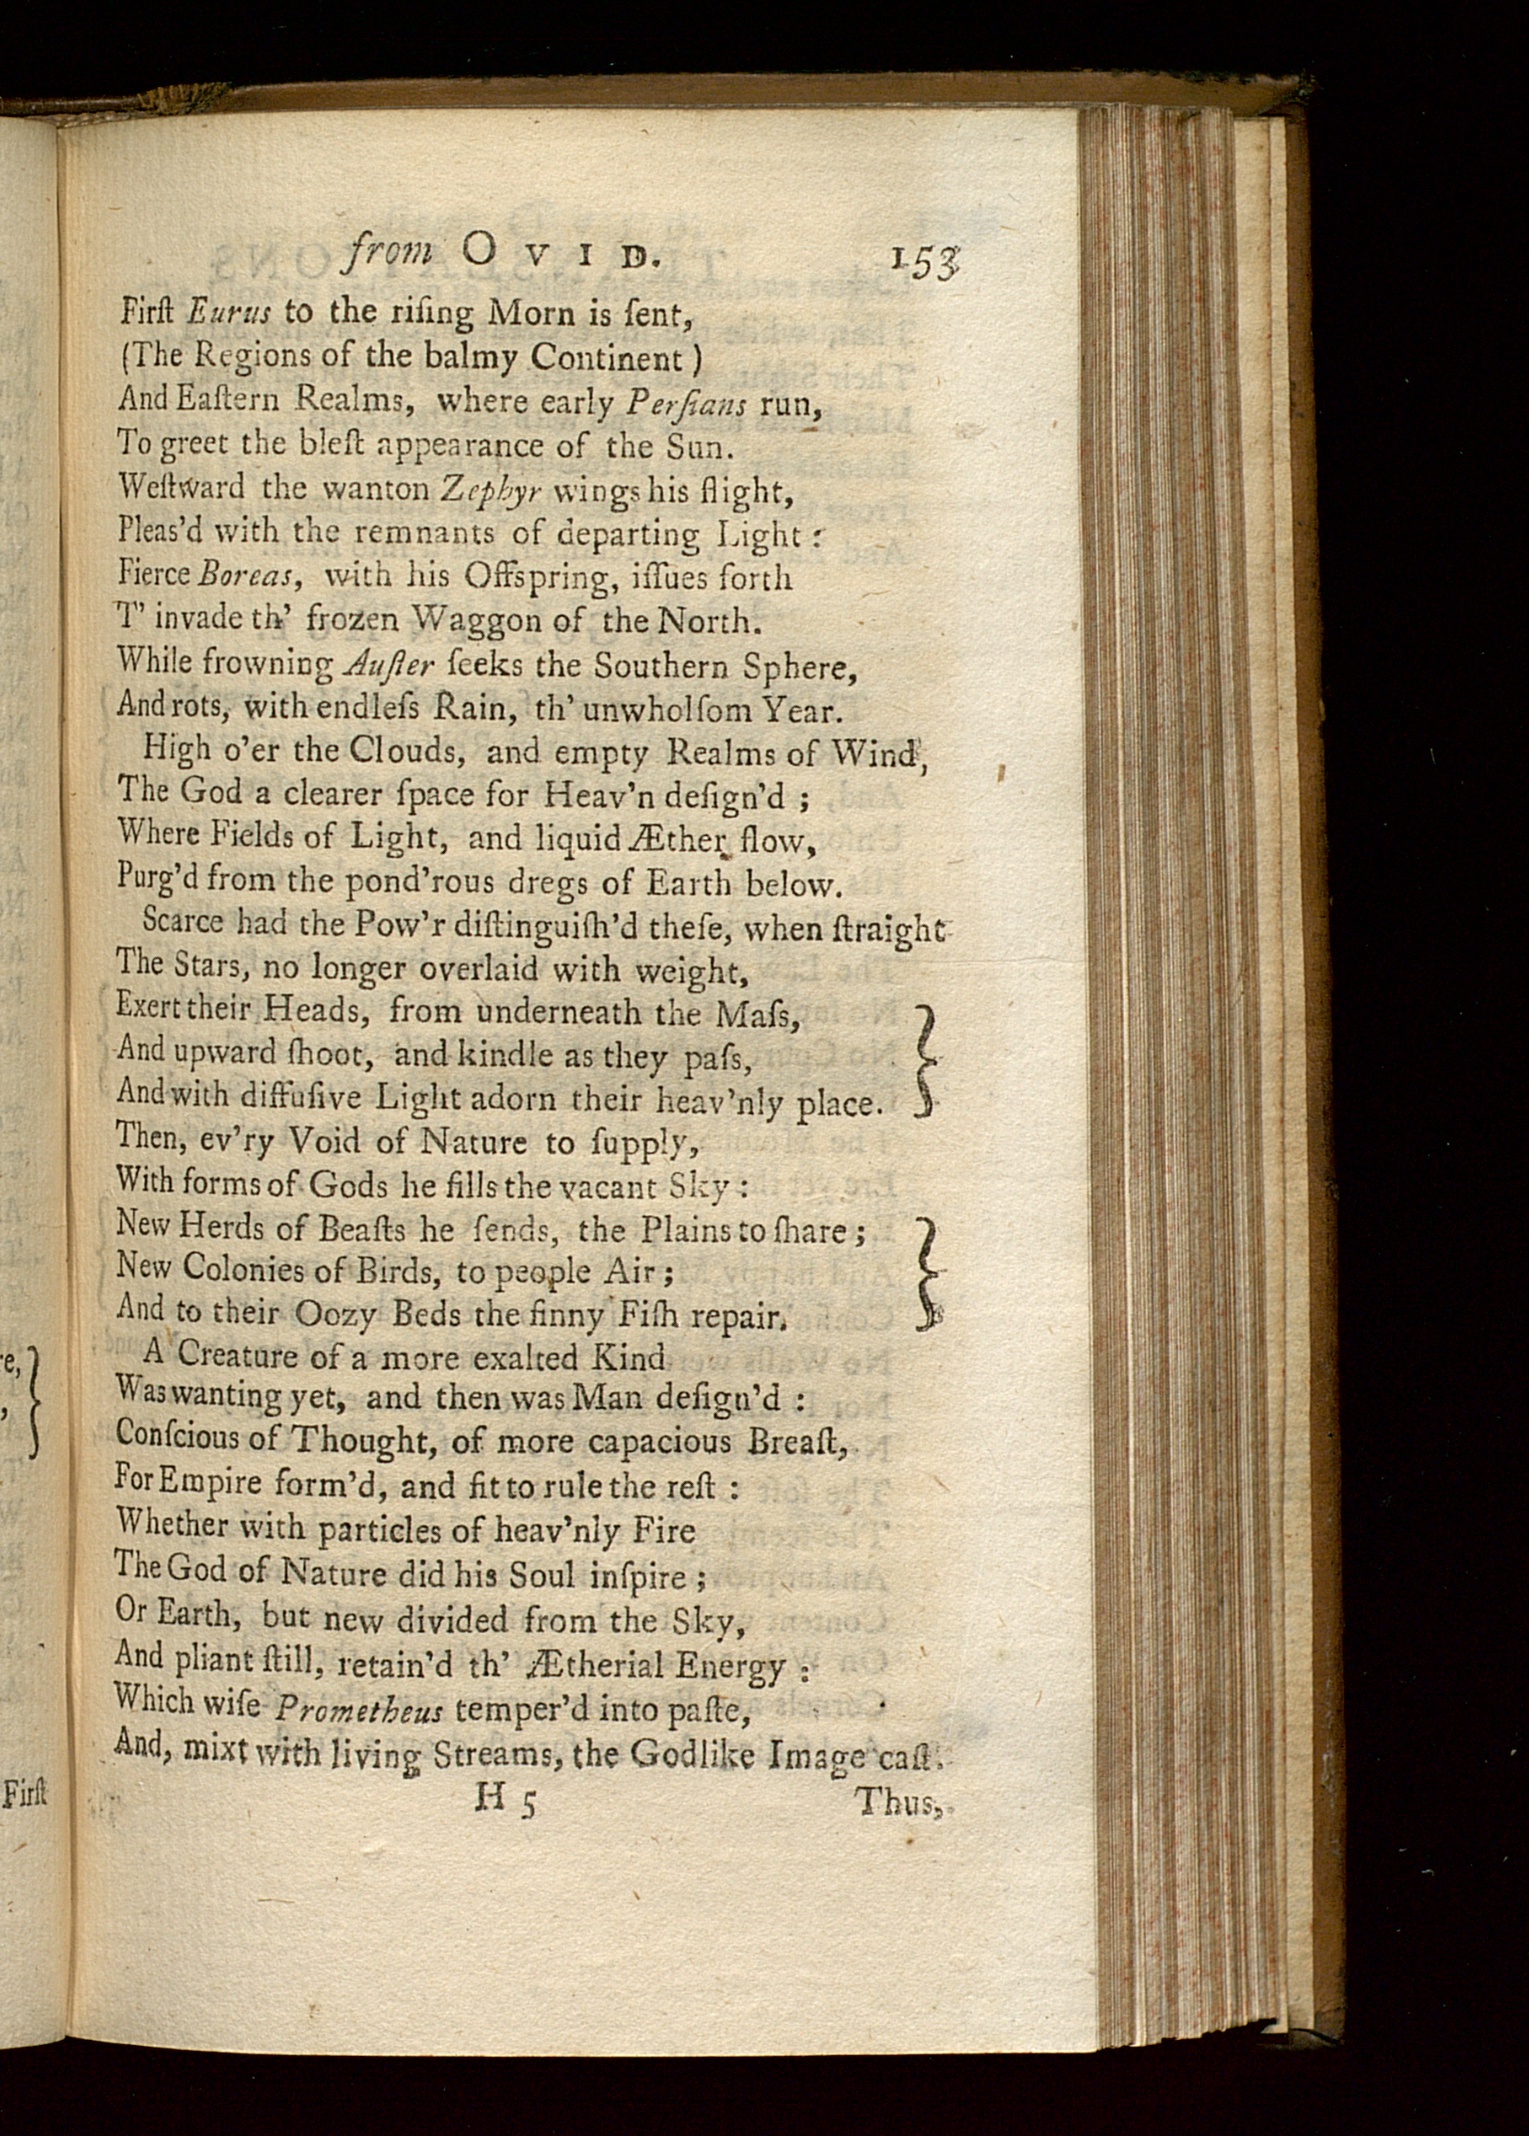 from OVID. 153
Firſt Eurus to the riſing Morn is ſent,
(The Regions of the balmy Continent)
And Eaſtern Realms, where early Perſians run,
To greet the bleſt appearance of the Sun.
Weſtward the wanton Zephyr wings his flight,
Pleas'd with the remnants of departing Light:
Fierce Boreas, with his Offspring, iſſues forth
T' invade th' frozen Waggon of the North.
While frowning Auſter ſeeks the Southern Sphere,
And rots, with endleſs Rain, th' unwholſom Year.
High o'er the Clouds, and empty Realms of Wind,
The God a clearer ſpace for Heav'n deſign'd;
Where Fields of Light, and liquid Æther flow,
Purg'd from the pond'rous dregs of Earth below.
Scarce had the Pow'r diſtinguiſh'd theſe, when ſtraight
The Stars, no longer overlaid with weight,
Exert their Heads, from underneath the Maſs,
And upward ſhoot, and kindle as they paſs,
And with diffuſive Light adorn their heav'nly place.
Then, ev'ry Void of Nature to ſupply,
With forms of Gods he fills the vacant Sky:
New Herds of Beaſts he ſends, the Plains to ſhare;
New Colonies of Birds, to people Air;
And to their Oozy Beds the finny Fiſh repair.
A Creature of a more exalted Kind
Was wanting yet, and then was Man deſign'd:
Conſcious of Thought, of more capacious Breaſt,
For Empire form'd, and fit to rule the reſt:
Whether with particles of heav'nly Fire
The God of Nature did his Soul inſpire;
Or Earth, but new divided from the Sky,
And pliant ſtill, retain'd th' Ætherial Energy:
Which wiſe Prometheus temper'd into paſte,
And, mixt with living Streams, the Godlike Image caſt.
H 5 Thus,
Firſt